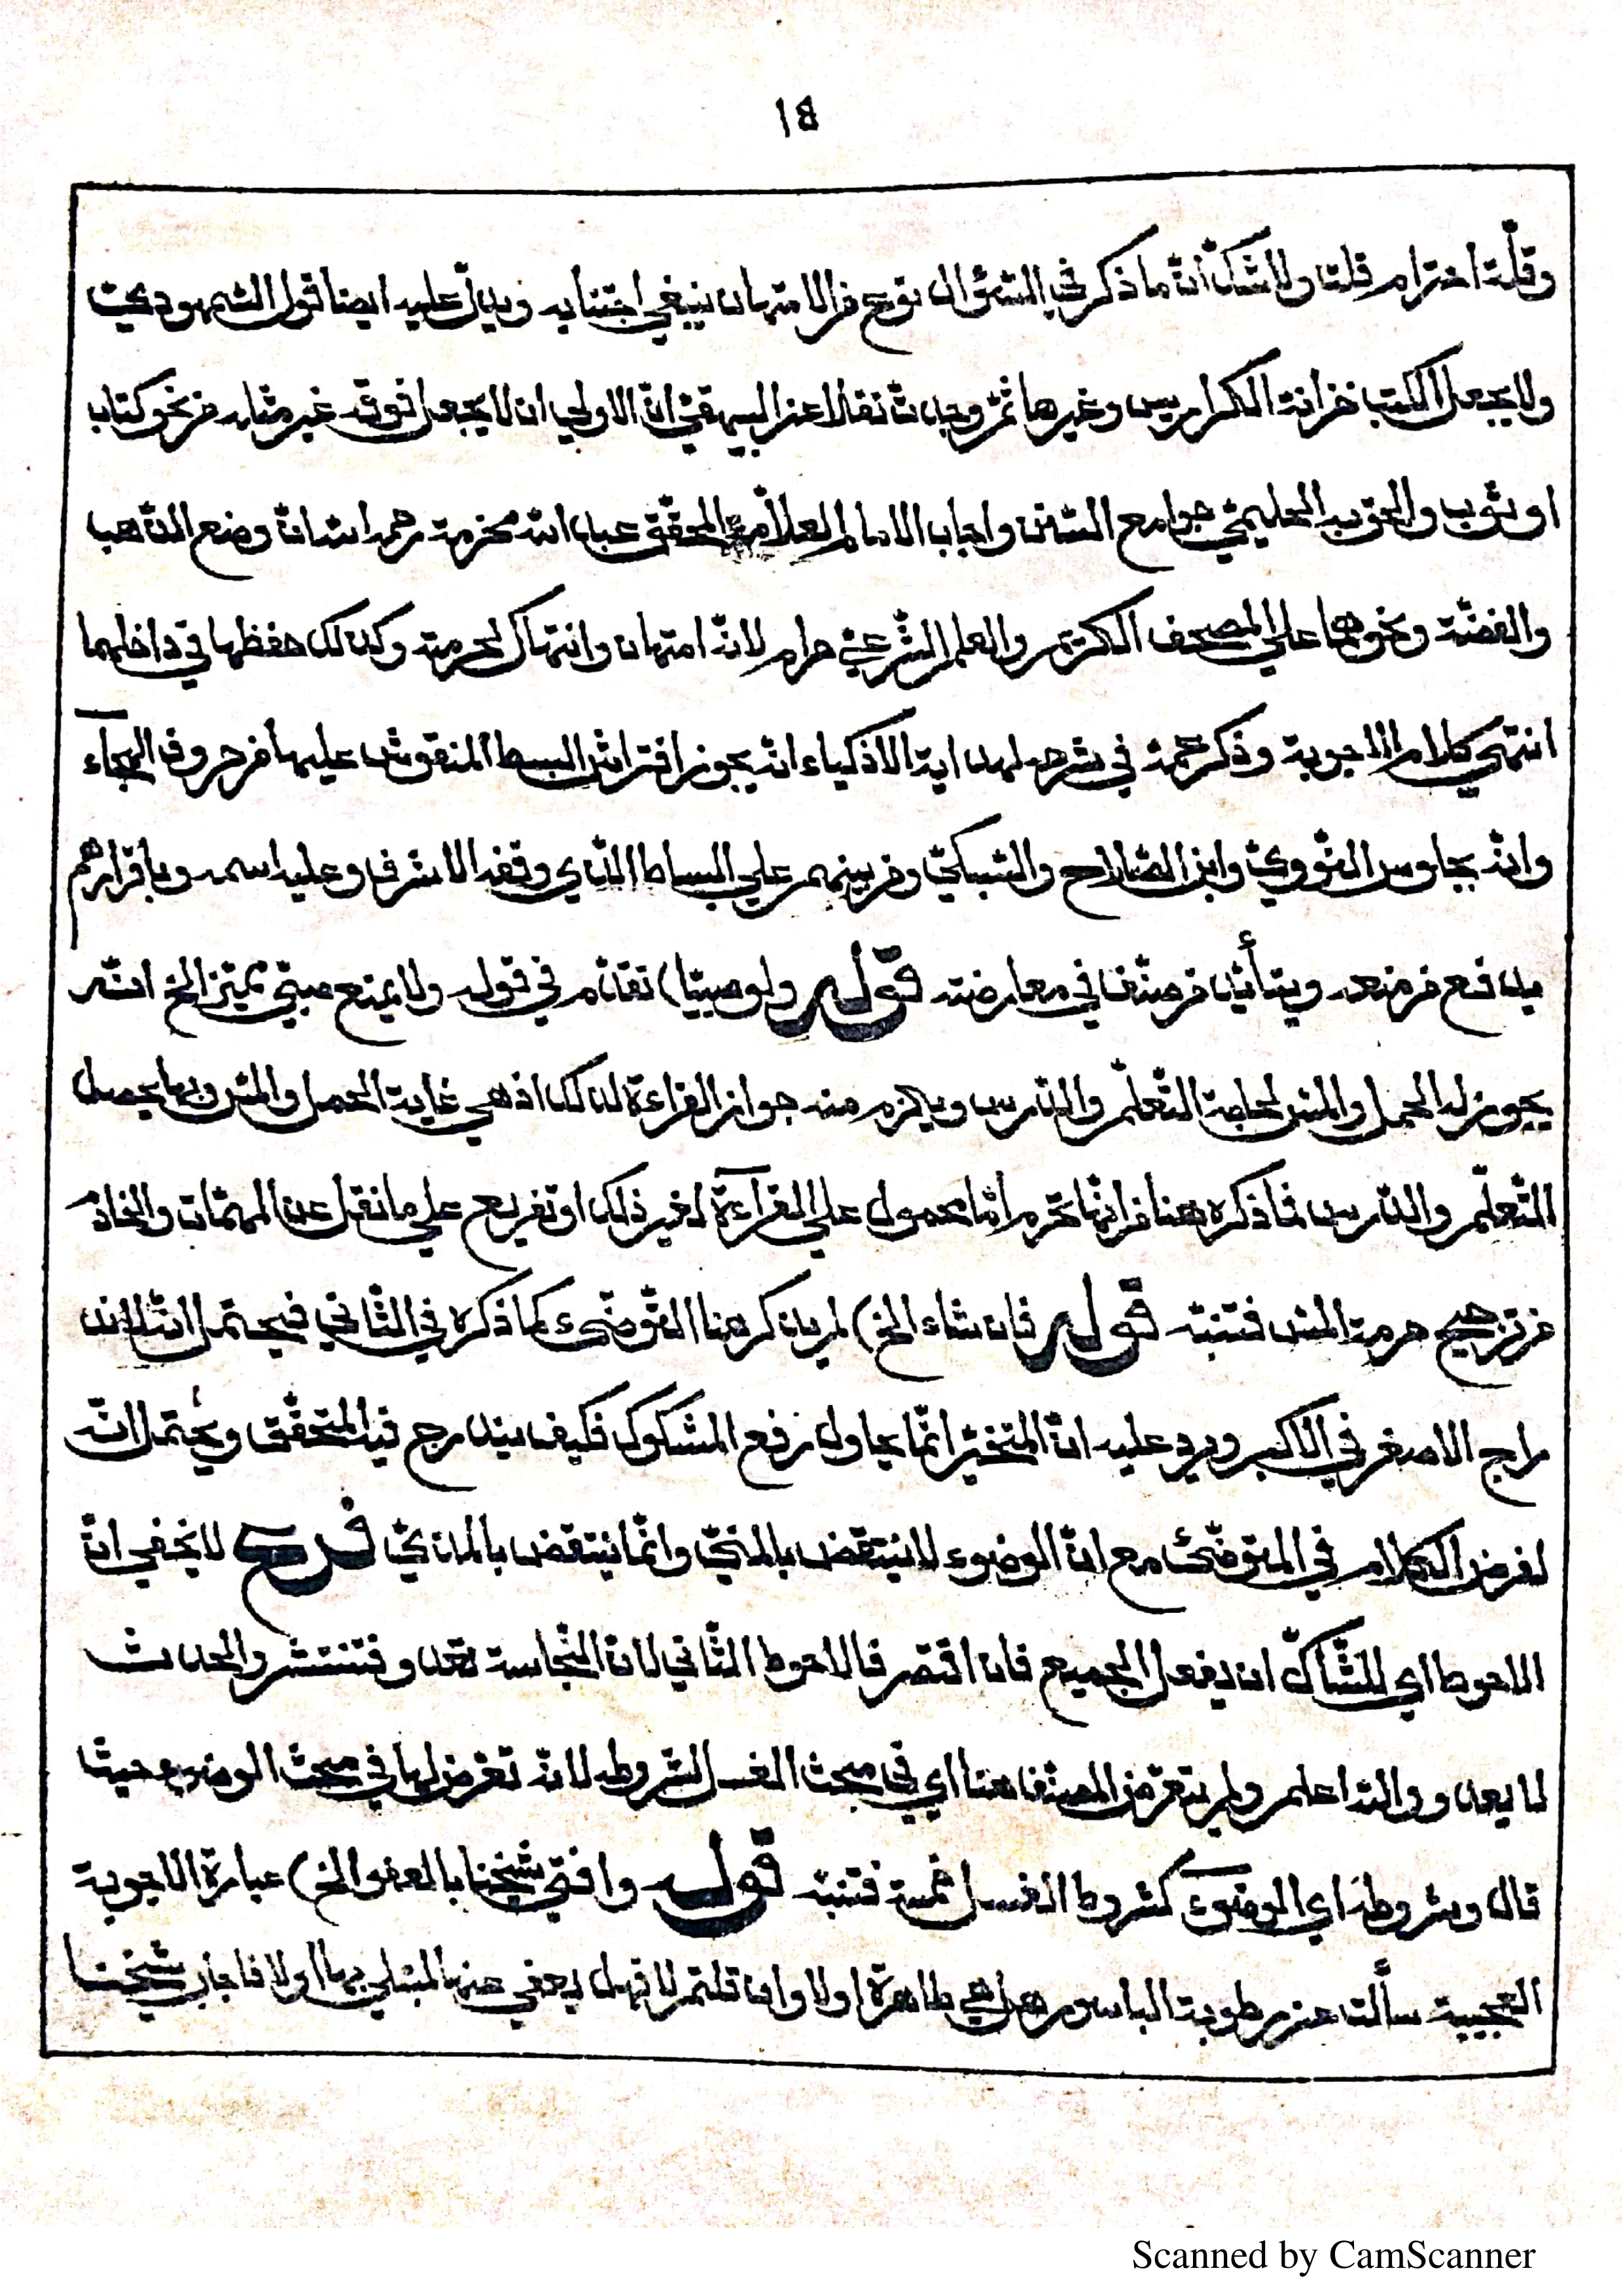 ١٤
وقلّة احترام قلت ولا شكّ انّ ما ذكر في السّؤال نوع من الامتهان ينبغي اجتنابه ويدلّ عليه ايضا قول السّمهوديّ
ولا يجعل الكتب خزانة الكراريس وغيرها ثمّ وجدت نقلا عن البيهقيّ انّ الاولى ان لا يجعل فوقه غير مثله من نحو كتاب
او ثوب والحق به الحليميّ جوامع السّنن واجاب الامام العلّامة المحقّق عبد الله مخرمة رحمه الله انّ وضع الذّهب
والفضّة ونحوهما على المصحف الكريم والعلم الشّرعيّ حرام لانّه امتهان وانتهاك لحرمته وكذلك حفظها في داخلهما
انتهى كلام الاجوبة وذكر في شرحه لهداية الاذكياء انّه يجوز افتراش البسط المنقوش عليها من حروف الهجاء
وانّه بجلوس النّوويّ وابن الصّلاح والسّبكيّ ومن بينهم على البساط الذّي وقفه الاشرف وعليه اسمه وباقرارهم
يدفع من منعه ويتأيّد من صنّف في معارضته قوله ولو صبيّا) تقدّم في قوله ولا يمنع صبيّ مميّز الخ انّه
يجوز له الحمل والمسّ لحاجة التّعلّم والدّرس ويلزم منه جواز القراءة لذلك اذ هي غاية الحمل والمسّ وبها يحصل
التّعلّم والدّرس فما ذكره هنا من انّها تحرم امّا محمول على القرآءة لغير ذلك او تفريع على ما نقل عن المهمّات والخادم
من ترجيح حرمة المسّ فتنبّه قوله فان شاء الخ) لم يذكر هنا التّوضّىء كما ذكره في الثّاني فيحتمل انّه لاند
راج الاصغر في الاكبر ويرد عليه انّ المتخيّر انّما يحاول رفع المشكوك فكيف يندرج فيه المتحقّق ويحتمل انّه
لفرض الكلام في المتوضّئ مع انّ الوضوء لا ينتقض بالمنيّ وانّما ينتقض بالمذيّ فرع لا يخفى انّ
الاحوط اي للشّاكّ ان يفعل الجميع فان اقتصر فالاحوط الثّاني لانّ النّجاسة تعدو فتنتشر والحدث
لا يعدو والله اعلم ولم يتعرّض المصنّف هنا اي في مبحث الغسل لشروطه لانّه تعرّض لها في مبحث الوضوء حيث
قال وشروطه اي الوضوء كشروط الغسل خمسة فتنبّه قوله وافتى شيخنا بالعفو الخ) عبارة الاجوبة
العجيبة سألت عن رطوبة الباسور هل هي طاهرة او لا وان قلتم لا فهل يعفى عنها لمبتلى بها او لا فاجاب شيخنا
Scanned by CamScanner